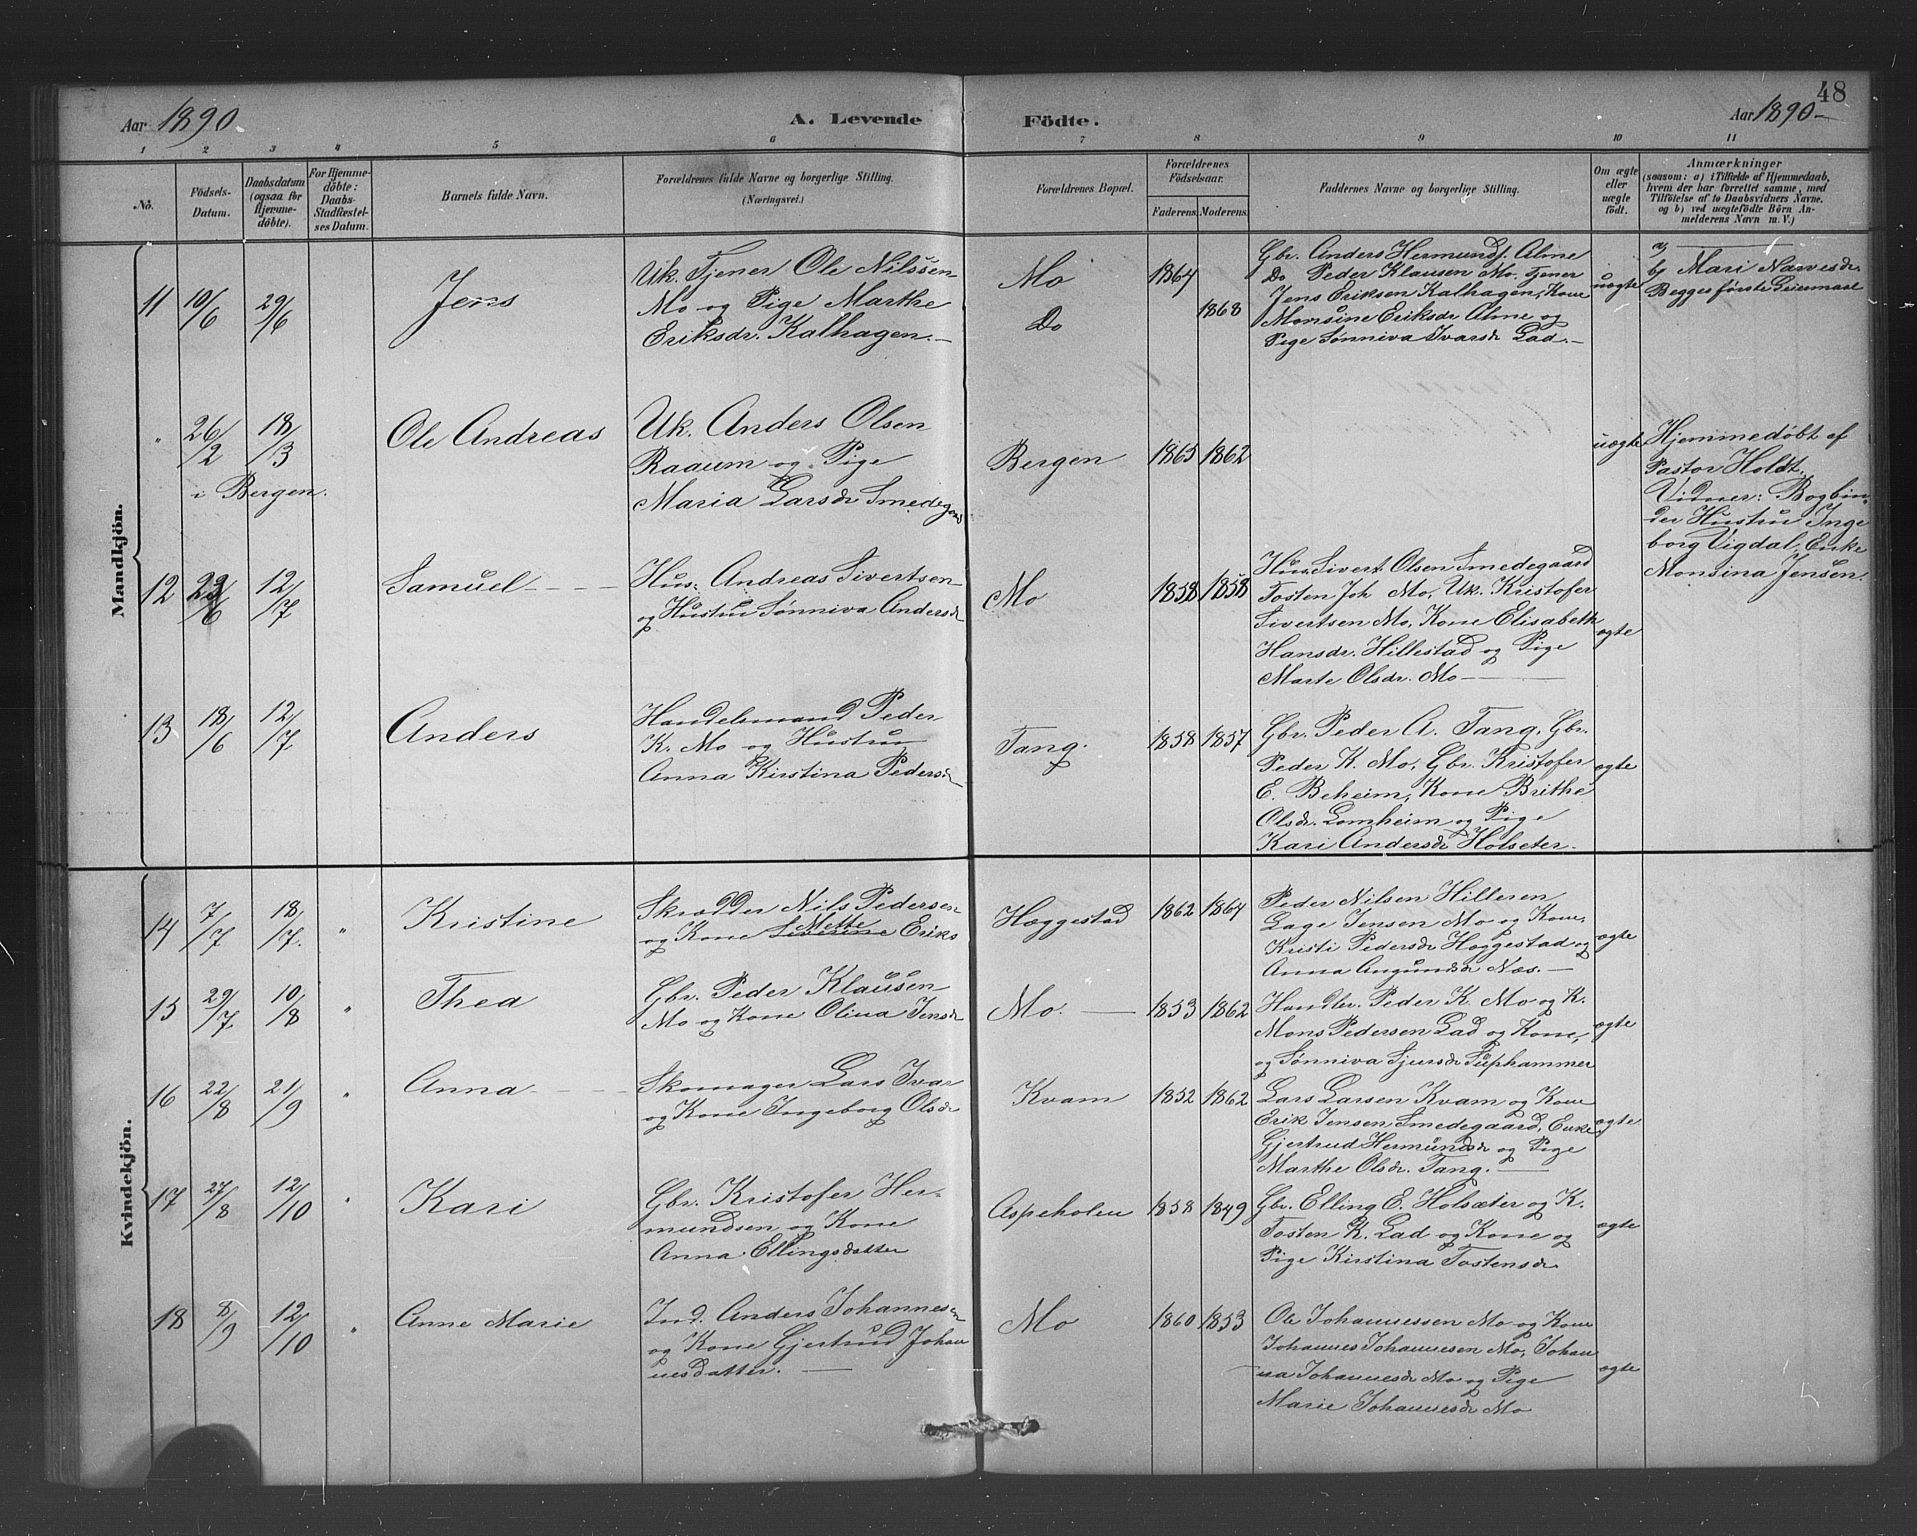 48
Aar 1890. A. Levende Födte. Aar 1890
1 2 3 4 5 6 7 8 9 10 11
No.
Födsels-
Datum.
Daabsdatum
(ogsaa for
Hjemme-
döbte).
For Hjemme-
döbte:
Daabs-
Stadfæstel-
ses Datum.
Barnets fulde Navn.
Forældrenes fulde Navne og borgerlige Stilling.
(Næringsvei.)
Forældrenes Bopæl.
Forældrenes
Födselsaar.
Faderens. Moderens.
Faddernes Navne og borgerlige Stilling.
Om ægte
eller
uægte
födt.
Anmærkninger
(saasom: a) i Tilfælde af Hjemmedaab,
hvem der har forrettet samme, med
Tilföielse af to Daabsvidners Navne.
og b) ved uægtefödte Börn An-
melderens Navn m. V.)
Mandkjön.
11 10/6 29/6
Jens
Uk. Tjener Ole Nilssen
Mo og Pige Marthe
Eriksdr. Kalhagen.
Mo
Do
1864
1868
Gbr. Anders Hermunds. Alme
Do Peder Klausen Mo, Tjener
Jens Eriksen Kalhagen, Kone
Monsine Eriksdr Alme og
Pige Sönniva Ivarsdr Lad.
uægte
a)
b) Mari Næresdr.
Begges første Leiermaal
" 26/2 18/3
i Bergen.
Ole Andreas
Uk. Anders Olsen
Raaum og Pige
Maria Larsdr Smedegard
Bergen
1865 1862
uægte
Hjemmedöbt af
Pastor Holdt.
Vidner: Bogbin-
der Hustru Inge
borg Vigdal, Enke
Monsina Jensen.
12 /6 12/7
Samuel
Hus. Andreas Sivertsen
og Hustru Sönniva Andersdr
Mo
1858 1858
Hus. Sivert Olsen Smedegaard
Tosten Joh Mo, Uk. Kristofer
Sivertsen Mo, Kone Elisabeth
Hansdr. Hillestad og Pige
Marte Olsdr. Mo
ægte
13 18/6 12/7
Anders
Handelsmand Peder
K. Mo og Hustru
Anna Kirstina Pedersdr
Tang.
1858 1857
Gbr. Peder A. Tang, Gbr.
Peder K. Mo, Gbr. Kristofer
E. Beheim, Kone Brithe
Olsdr. Lomheim og Pige
Kari Andersdr Holseter
ægte
Kvindekjön.
14 7/7 18/7. "
Kristine
Skrædder Nils Pedersen
Mette
og Kone Severine Eriks
Hæggestad
1862 1864
Peder Nilsen Hilleren
Lage Jensen Mo og Kone,
Kristi Pedersdr Hæggestad og
Anna Angundsdr Næs.
ægte
15 29/7 10/8 "
Thea
Gbr. Peder Klausen
Mo og Kone Olina Jensdr
Mo.
1853 1862
Handler. Peder K. Mo og K.
Mons Pedersen Lad og Kone,
og Sönniva Sjursdr Tüphammer
ægte
16 22/8 21/9 "
Anna
Skomager Lars Ivar
og Kone Ingeborg Olsdr
Kvam
1852 1862
Lars Larsen Kvam og Kone
Erik Jensen Smedegaard, Enke
Gjertrud Hermundsdr og Pige
Marthe Olsdr. Tang.
ægte
17 27/8 12/10 "
Kari
Gbr. Kristofer Her-
mundsen og Kone
Anna Ellingsdatter
Aspeholen
1858 1849
Gbr. Elling E. Holsæter og K.
Tosten K. Lad og Kone og
Pige Kirstina Tostensdr
ægte
18 8/9 12/10 "
Anne Marie
Ind. Anders Johannesen
og Kone Gjertrud Johan
nesdatter.
Mo
1860 1853
Ole Johannessen Mo og Kone
Johannes Johannesen Mo, Johan
na Johannesdr Mo og Pige
Marie Johannesdr Mo
ægte